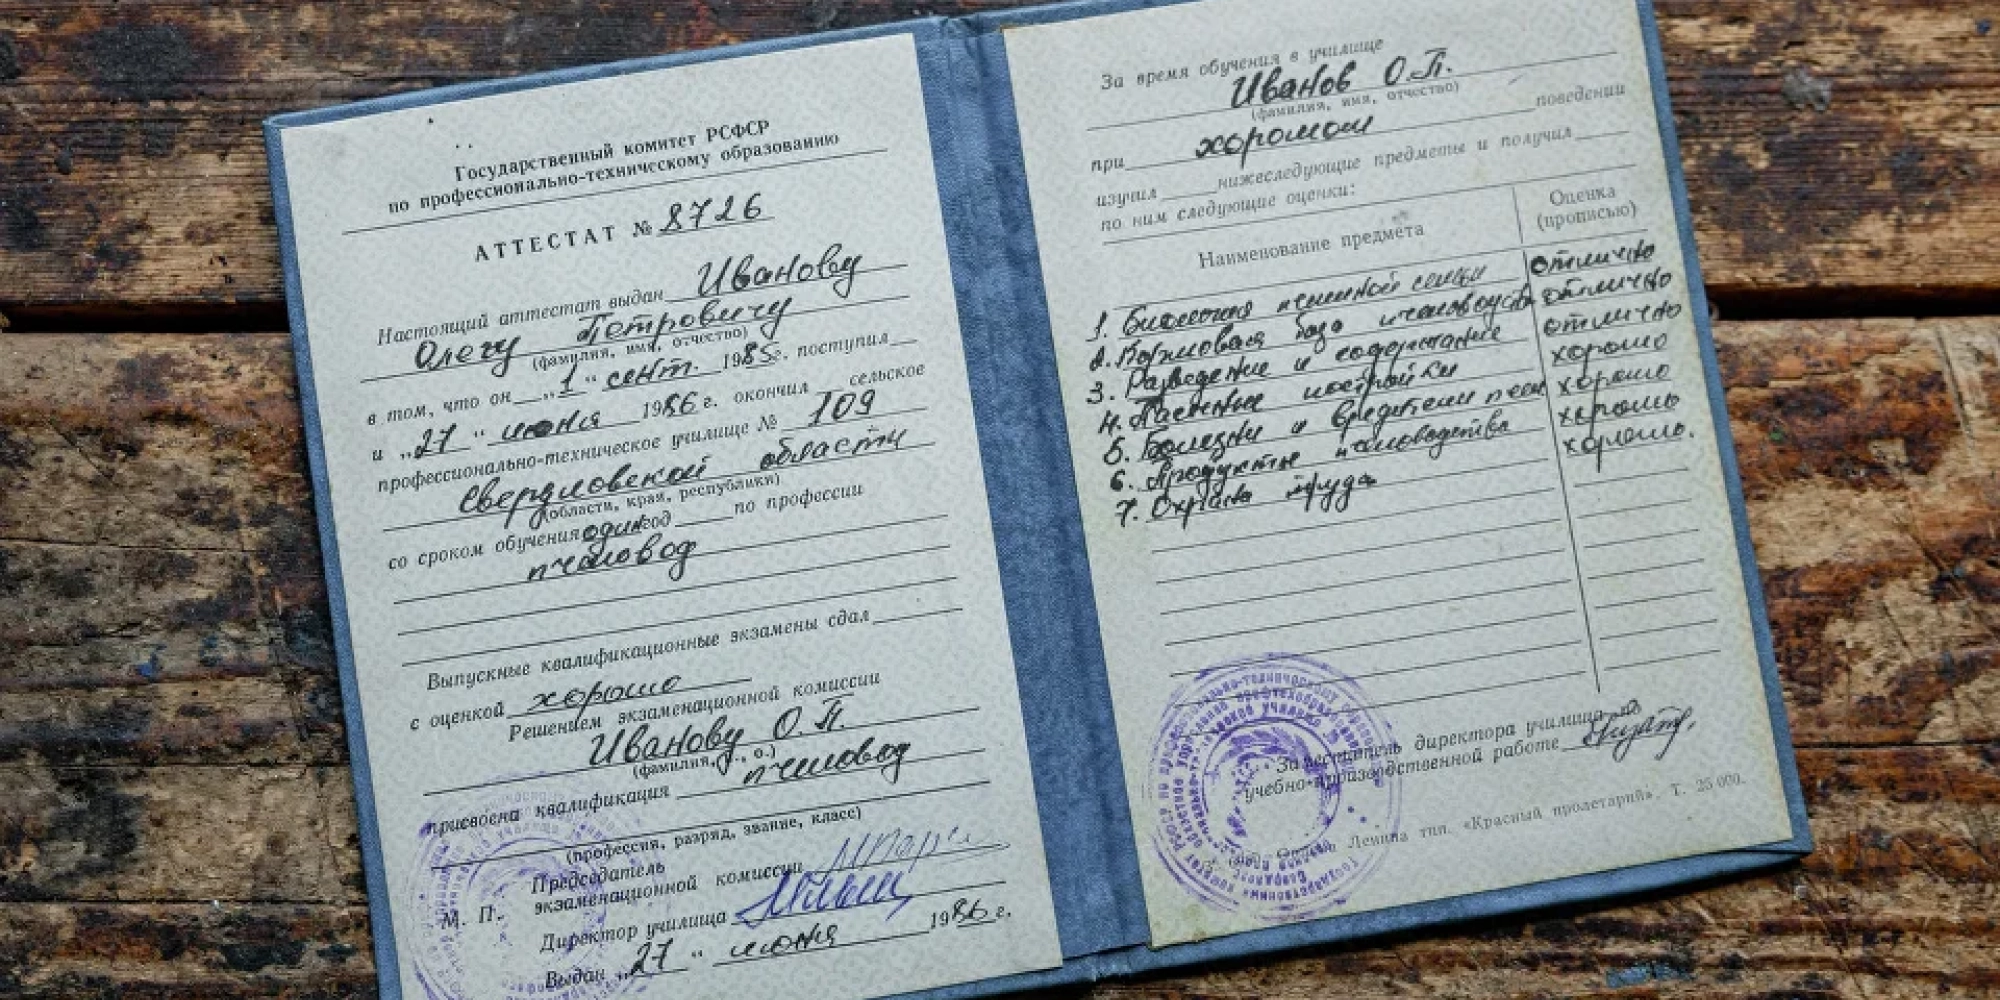 Государственный комитет РСФСР
по профессионально-техническому образованию
АТТЕСТАТ № 8726
Настоящий аттестат выдан Иванову
Олегу Петровичу
(фамилия, имя, отчество)
в том, что он „1“ сент. 1985г. поступил
и „27“ июня 1986г. окончил сельское
профессионально-техническое училище № 109
Свердловской области
(области, края, республики)
со сроком обучения один год по профессии
пчеловод
Выпускные квалификационные экзамены сдал
с оценкой хорошо
Решением экзаменационной комиссии
Иванову О.П.
(фамилия, и., о.)
присвоена квалификация пчеловод
(профессия, разряд, звание, класс)
Председатель
экзаменационной комиссии
М. П.
Директор училища
Выдан „27“ июня 1986г.
За время обучения в училище
Иванов О.П.
(фамилия, имя, отчество)
при хорошем поведении
изучил нижеследующие предметы и получил
по ним следующие оценки:
Наименование предмета Оценка (прописью)
1. Биология пчелиной семьи отлично
2. Кормовая база пчеловодства отлично
3. Разведение и содержание отлично
4. Пасечные постройки хорошо
5. Болезни и вредители пчел хорошо
6. Продукты пчеловодства хорошо
7. Охрана труда хорошо.
Заместитель директора училища по
учебно-производственной работе
Ленина тип. «Красный пролетарий». Т. 25 000.